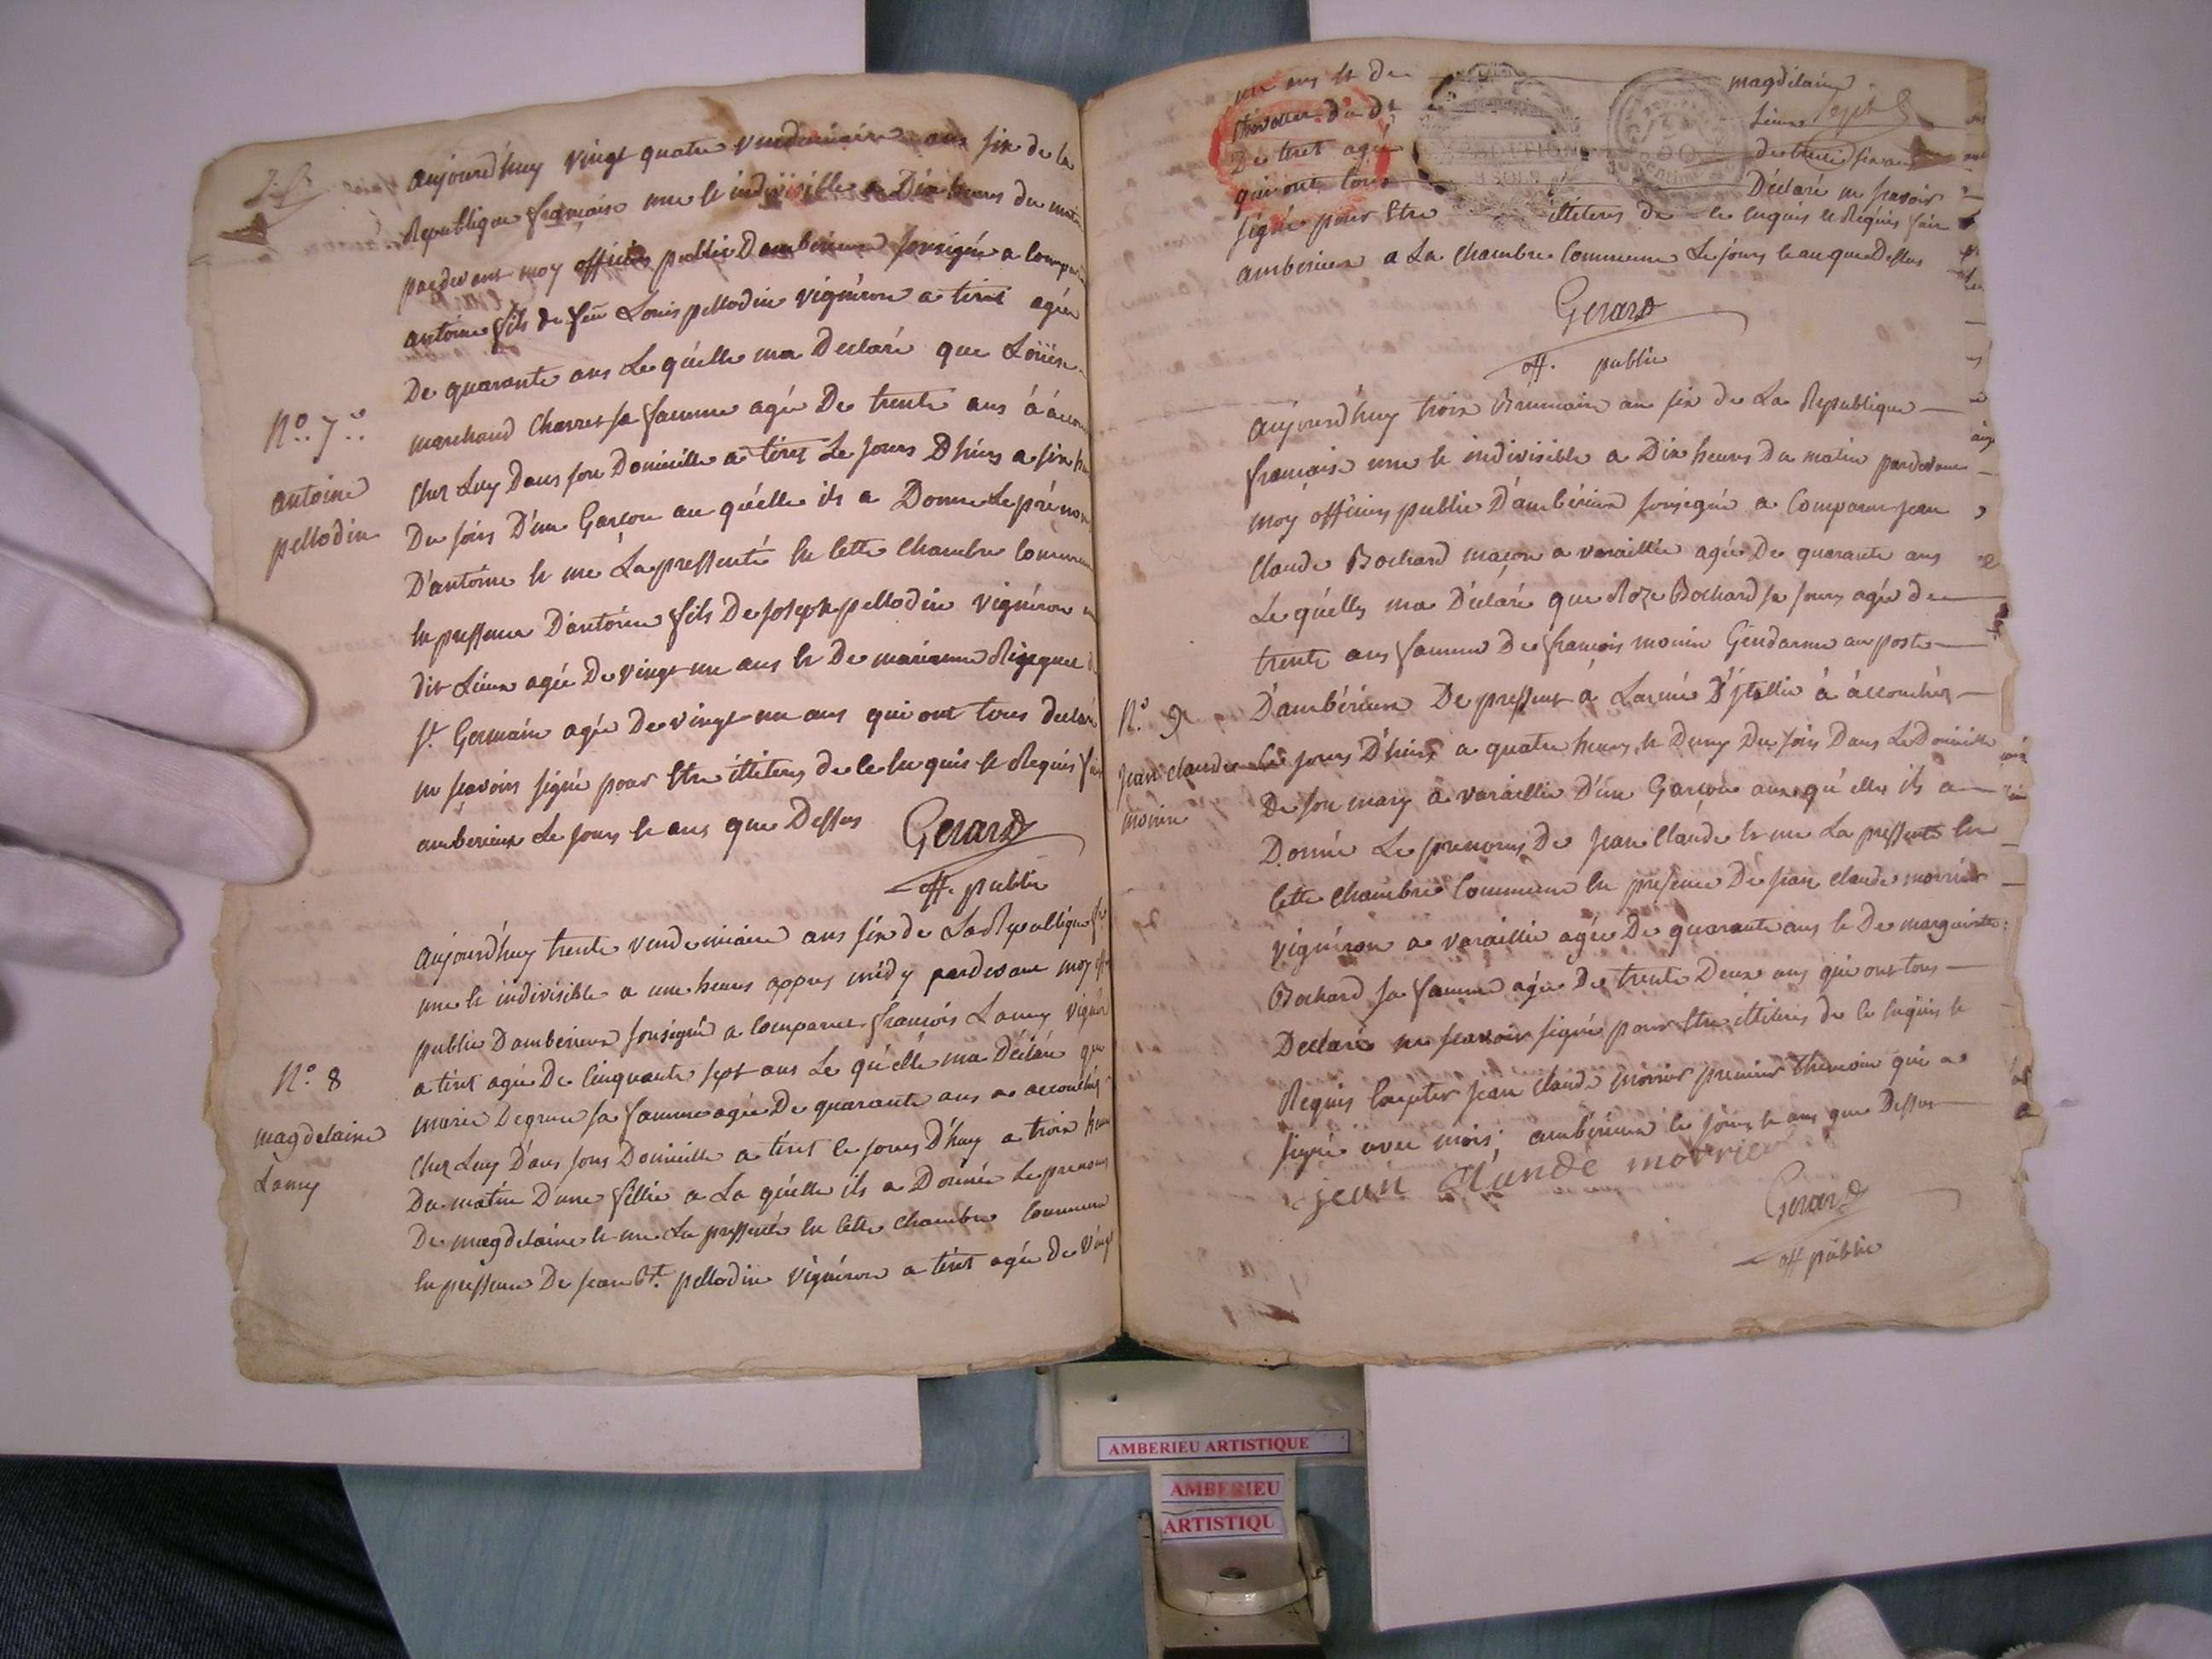 aujourd'huy vingt quatre vendemiaire ans six de la
Republique françoise une et indivisible a Dix heures du mat
pardevant moy officier public D'amberieux sousigné a compa
antoine fils de feu Louis pellodin vigneron a tiret agée
De quarante ans Le quelle ma Declaré que Loüise
marchand Charvet sa famme agée De trente ans à accou
Nº.. 7..
antoine
pellodin
Chez Luy Dans son Domicille a tiret Le jours D'hiers a six heu
Du soirs D'un Garçon au quélle ils a Donné Le prénom
D'antoine et me La pressenté en Cette Chambre Commun
En pressence D'antoine fils De joseph pellodin vigneron
dit Lieux agée De vingt un ans et De marianne
St. Germain agée De vingt un ans qui ont tous declaré
ne scavoirs signé pour Etre illiteres de ce Enquis et Requis fai
amberieux Le jours et ans que Dessus Gerard
off. public
aujourd'huy trente vendemiaire ans six de La Republique f
une et indivisible a une heures appres midy pardevant moy off
public D'amberieux sousigné a Comparue françois Lamy vigner
a tiret agée De Cinquante sept ans Le quélle ma Déclaré que
marie Degrue sa famme agée De quarante ans a accouchés
Nº. 8
magdelaine
Lamy
Chez Luy D'ans sons Domicille a tiret le jours D'huy a trois heu
Du matin D'une fillie a La quélle ils a Donnée Le prenoms
De magdelaine et me La pressenté en Cette Chambre Commune
En pressence De jean Bte. pellodin vigneron a tiret agée de vingt
un ans et De magdelaine
du Dt Lieux
De tiret agée de trente
qui ont tous Déclaré ne scavoir
signé pour Etre illiteres de ce Enquis et Requis fair
amberieux a La Chambre Commune Le jours et an que Dessus
Gerard
off. public
aujourd'huy trois Brumaire an six de La Republique
françoise une et indivisible a Dix heures Du matin pardevant
moy officiers public D'ambérieux sousigné a Comparus jean
Claude Bochard maçon a varaillie agée De quarante ans
Le quélle ma Déclaré que Roze Bochard sa seurs agée de
trente ans famme De françois monin Gendarme au poste
D'ambérieux De pressent á Larmé D'jtallie à áccouchés
Nº. 9
jean claude
monin
Le jours D'hiers a quatre heures et Demy Du soirs Dans Le Domicille
De son mary a varaillie D'un Garçon aux qu'elle ils a
Donné Le prenoms De jean Claude et me La pressenté En
Cette Chambre Commune En presence De jean claude morrier
vigneron a varaillie agée De quarante ans et De marguerite
Bochard sa famme agée De trente Deux ans qui ont tous
Declaré ne scavoir signé pour Etre illiteres de ce Enquis et
Requis Excepter jean claude morrier premier themoin qui a
signé avec mois; amberieux les jours et ans que Dessus
jean claude morrier
Gerard
off public
AMBERIEU ARTISTIQUE
AMBERIEU
ARTISTIQU